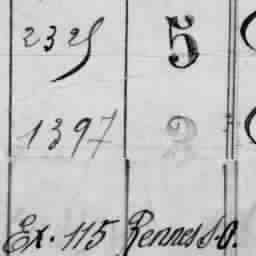 2325 5
1397 3
Ex. 115 Rennes S.O.